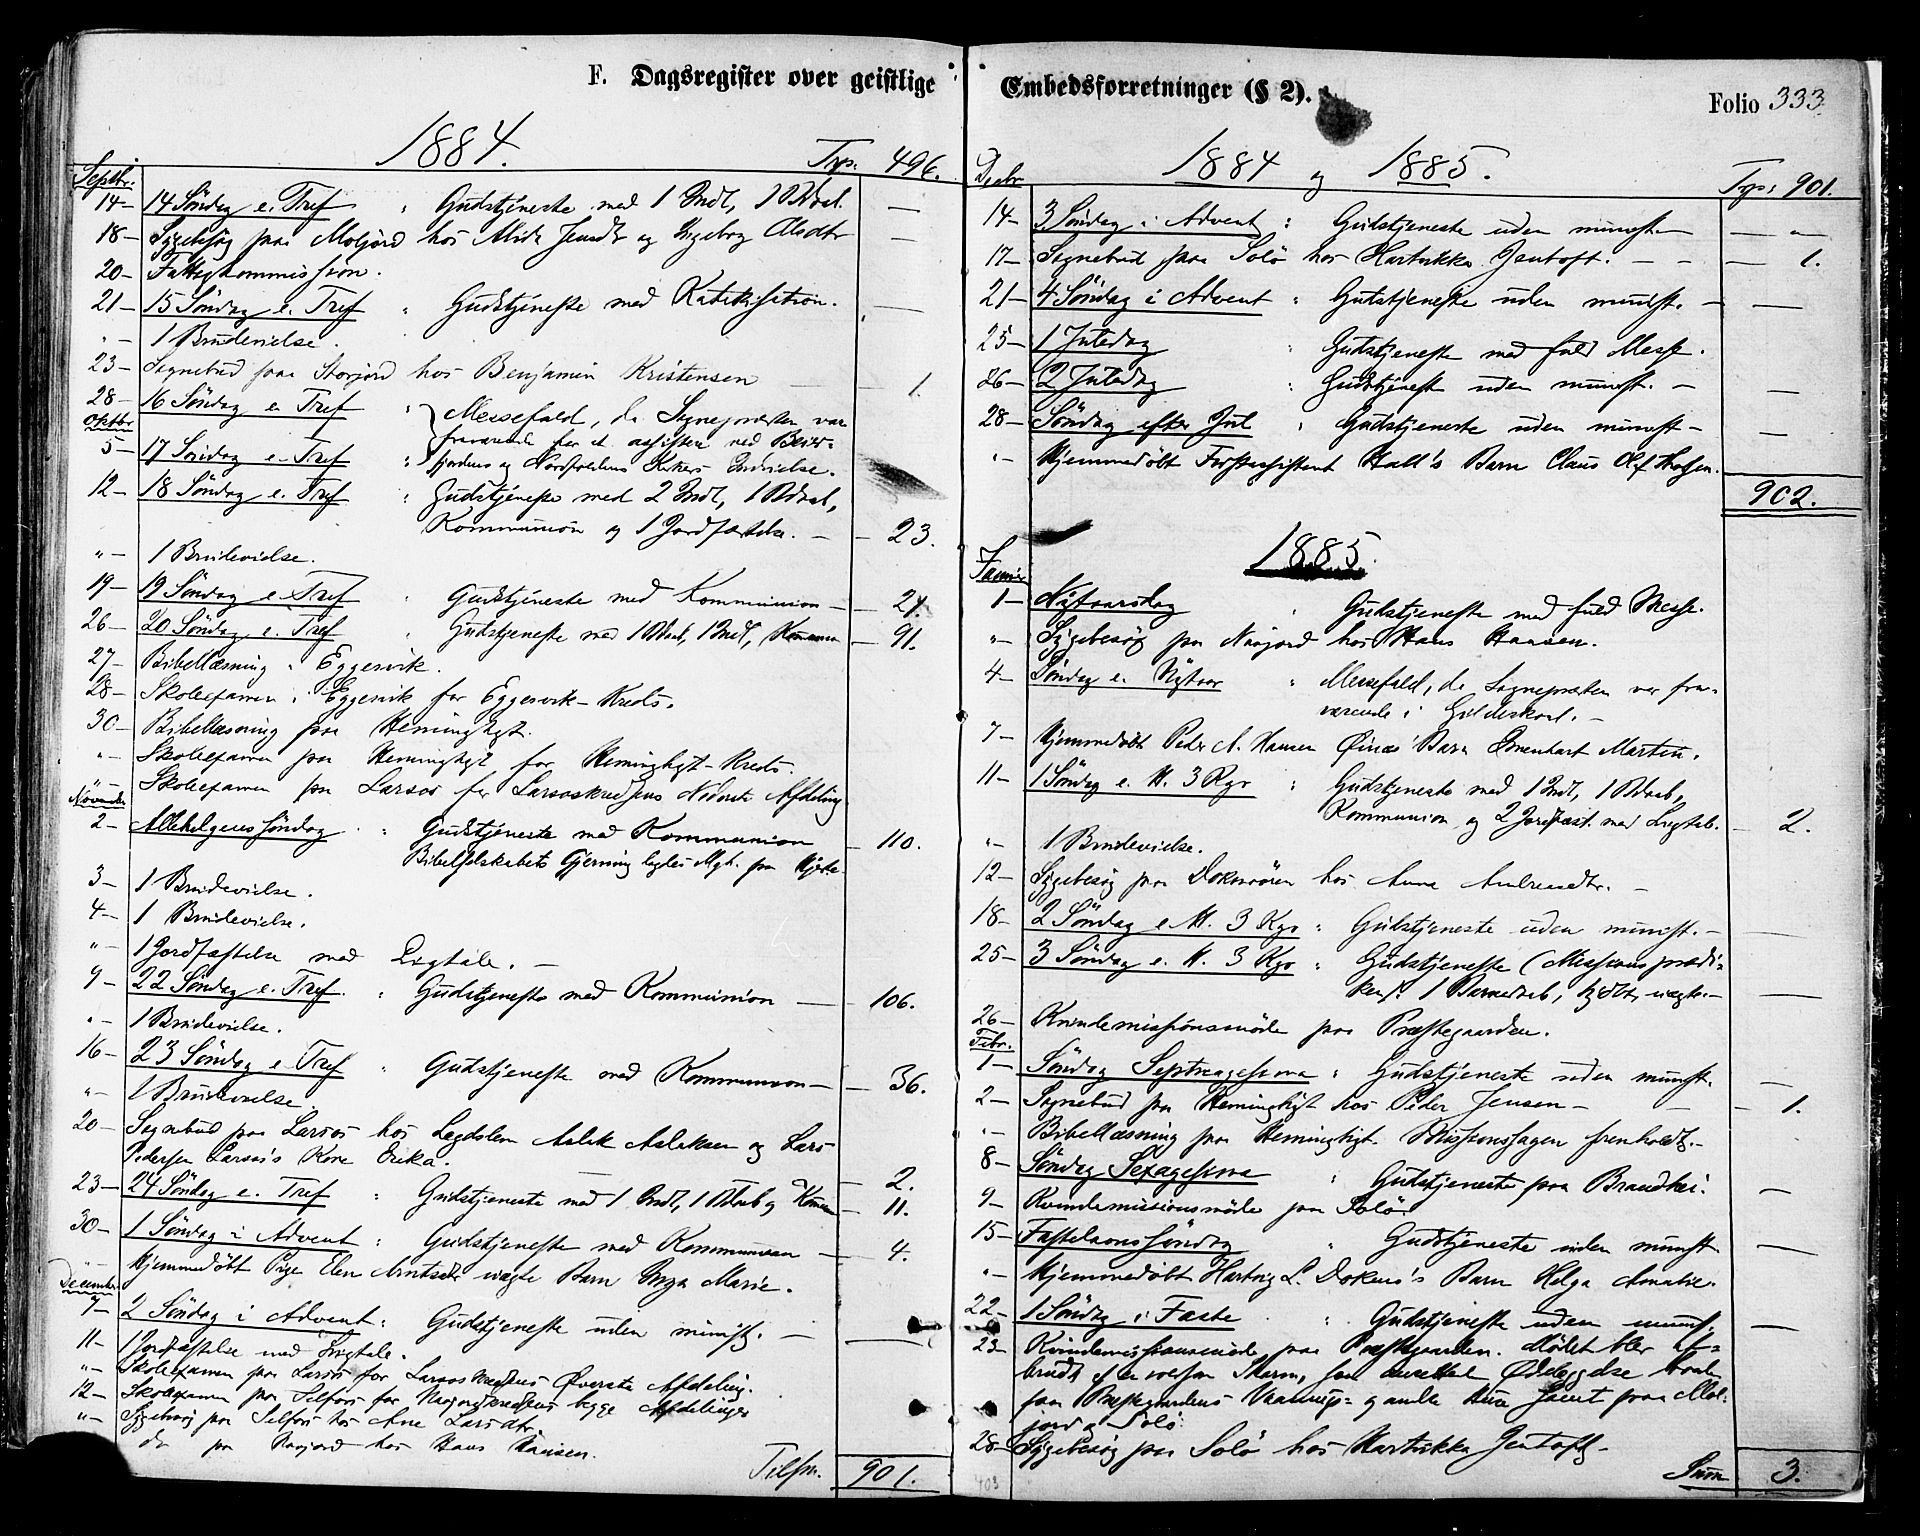 F. Dagsregister over geistlige
1884.
Septbr. Trp. 496.
14 – 14 Söndag e. Tref " Gudstjeneste med 1 Indl, 1 Bdaab. —
18 – Sygebesøg paa Moljord hos Alida Jensdtr og Ingeborg Olsdtr
20 – Fattigkommission.
21 – 15 Söndag e. Tref " Gudstjeneste med Katekisation. —
" – 1 Brudevielse.
23 – Sognebud paa Storjord hos Benjamin Kristensen — 1.
28 – 16 Söndag e. Tref " Messefald, da Sognepresten var
Oktbr fraværende for at assistere ved Beier-
5 – 17 Söndag e. Tref " fjordens og Nordfoldens Kirkers Indvielse.
12 – 18 Söndag e. Tref " Gudstjeneste med 2 Indl, 1 Bdaab,
Kommunion og 1 Jordfæstelse. — 23.
" – 1 Brudevielse.
19 – 19 Söndag e. Tref " Gudstjeneste med Kommunion — 21.
26 – 20 Söndag e. Tref " Gudstjeneste med 1 Bdaab, 1 Indl, Kommun — 91.
27 – Bibellæsning i Eggesvik.
28 – Skoleexamen i Eggesvik for Eggesvik-Kreds.
30 – Bibellæsning paa Hemingtyt.
" – Skoleexamen paa Hemingtyt for Hemingtyt-Kreds.
" – Skoleexamen paa Larsos for Larsoskredsens Nederste Afdeling
November
2 – Allehelgenssöndag " Gudstjeneste med Kommunion — 110.
Bibelselskabets Gjerning
3 – 1 Brudevielse.
4 – 1 Brudevielse.
" – 1 Jordfæstelse med Ligtale. —
9 – 22 Söndag e. Tref. " Gudstjeneste med Kommunion — 106.
" – 1 Brudevielse.
16 – 23 Söndag e. Tref " Gudstjeneste med Kommunion — 36.
" – 1 Brudevielse.
20 – Sognebud paa Larsos hos Legdslem Aslak Aslaksen og Lars
Pedersen Larsos's Kone Erika. — 2.
23 – 24 Söndag e. Tref " Gudstjeneste med 1 Indl, 1 Bdaab og Kommun — 11.
30 – 1 Söndag i Advent " Gudstjeneste med Kommunion — 4.
Hjemmedöbt Pige Elen Arntsdtr uægte Barn Inga Marie.
December
7 – 2 Söndag i Advent " Gudstjeneste uden minist. —
11 – 1 Jordfæstelse med Ligtale.
" – Skoleexamen paa Larsos for Larsoskredsens Øverste Afdeling.
12 – Skoleexamen paa Selfors for Naajordkredsens begge Afdelinger
" – Sygebesøg paa Selfors hos Ane Larsdtr
do paa Naajord hos Hans Hansen.
Tilsm. 901.
Embedsforretninger (§ 2).
Folio 333
1884 og 1885.
Decbr Trp: 901.
14 – 3 Söndag i Advent " Gudstjeneste uden minist. — "
17 – Sognebud paa Solö hos Hartvikka Jentoft. — 1.
21 – 4 Söndag i Advent " Gudstjeneste uden minist. —
25 – 1 Juledag " Gudstjeneste med fuld Messe.
26 – 2 Juledag " Gudstjeneste uden minist. —
28 – Söndag efter Jul " Gudstjeneste uden minist —
" – Hjemmedöbt Forstassistent Hall's Barn Claus Olaf
902.
1885.
Januar
1 – Nytaarsdag " Gudstjeneste med fuld Messe.
" – Sygebesøg paa Naajord hos Hans Hansen.
4 – Söndag e. Nytaar " Messefald, da Sognepresten var fra-
værende i Gildeskaal. —
7 – Hjemmedöbt Peder A. Hansen Øinæs' Barn Emenhart Martin.
11 – 1 Söndag e. H. 3 Kgr " Gudstjeneste med 1 Indl, 1 Bdaab,
Kommunion og 2 Jordfæst. med Ligtale. — 2.
" – 1 Brudevielse.
12 – Sygebesøg paa Dokmoören hos Anna Andreasdtr. —
18 – 2 Söndag e. H. 3 Kgr " Gudstjeneste uden minist. —
25 – 3 Söndag e. H. 3 Kgr " Gudstjeneste (Missionsprædi-
ken). 1 Barnedaab, uægte. —
26 – Kvindemissionsmöde paa Præstegaarden.
Febr.
1 – Söndag Septuagesima " Gudstjeneste uden minist. —
2 – Sognebud paa Hemingtyt hos Peder Jensen — 1.
" – Bibellæsning paa Hemingtyt. Missionssagen fremholdt. —
8 – Söndag Sexagesima " Gudstjeneste paa Brandhei. —
9 – Kvindemissionsmöde paa Solö.
15 – Fastelavnssöndag " Gudstjeneste uden minist. —
" – Hjemmedöbt Hartvig L. Dokmo's Barn Helga Amalie.
22 – 1 Söndag i Faste " Gudstjeneste uden minist. —
23 – Kvindemissionsmöde paa Præstegaarden. Mödet blev af-
brudt af en voldsom Storm, som anrettede Ødelæggelse baade
paa Præstegaardens Vaanings- og andre Huse samt paa Mol-
jord og Solö.
28 – Sygebesøg paa Solö hos Hartvikka Jentoft –
Sum 3.
403